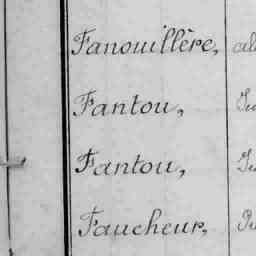 Fanouillère,
Fantou,
Fantou,
Faucheur,